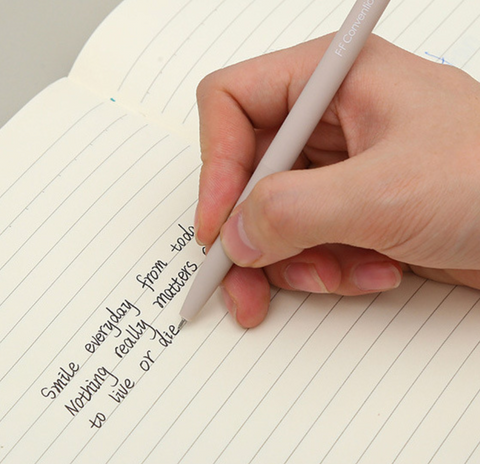 Smile everyday from toda
Nothing really matters
to live or die